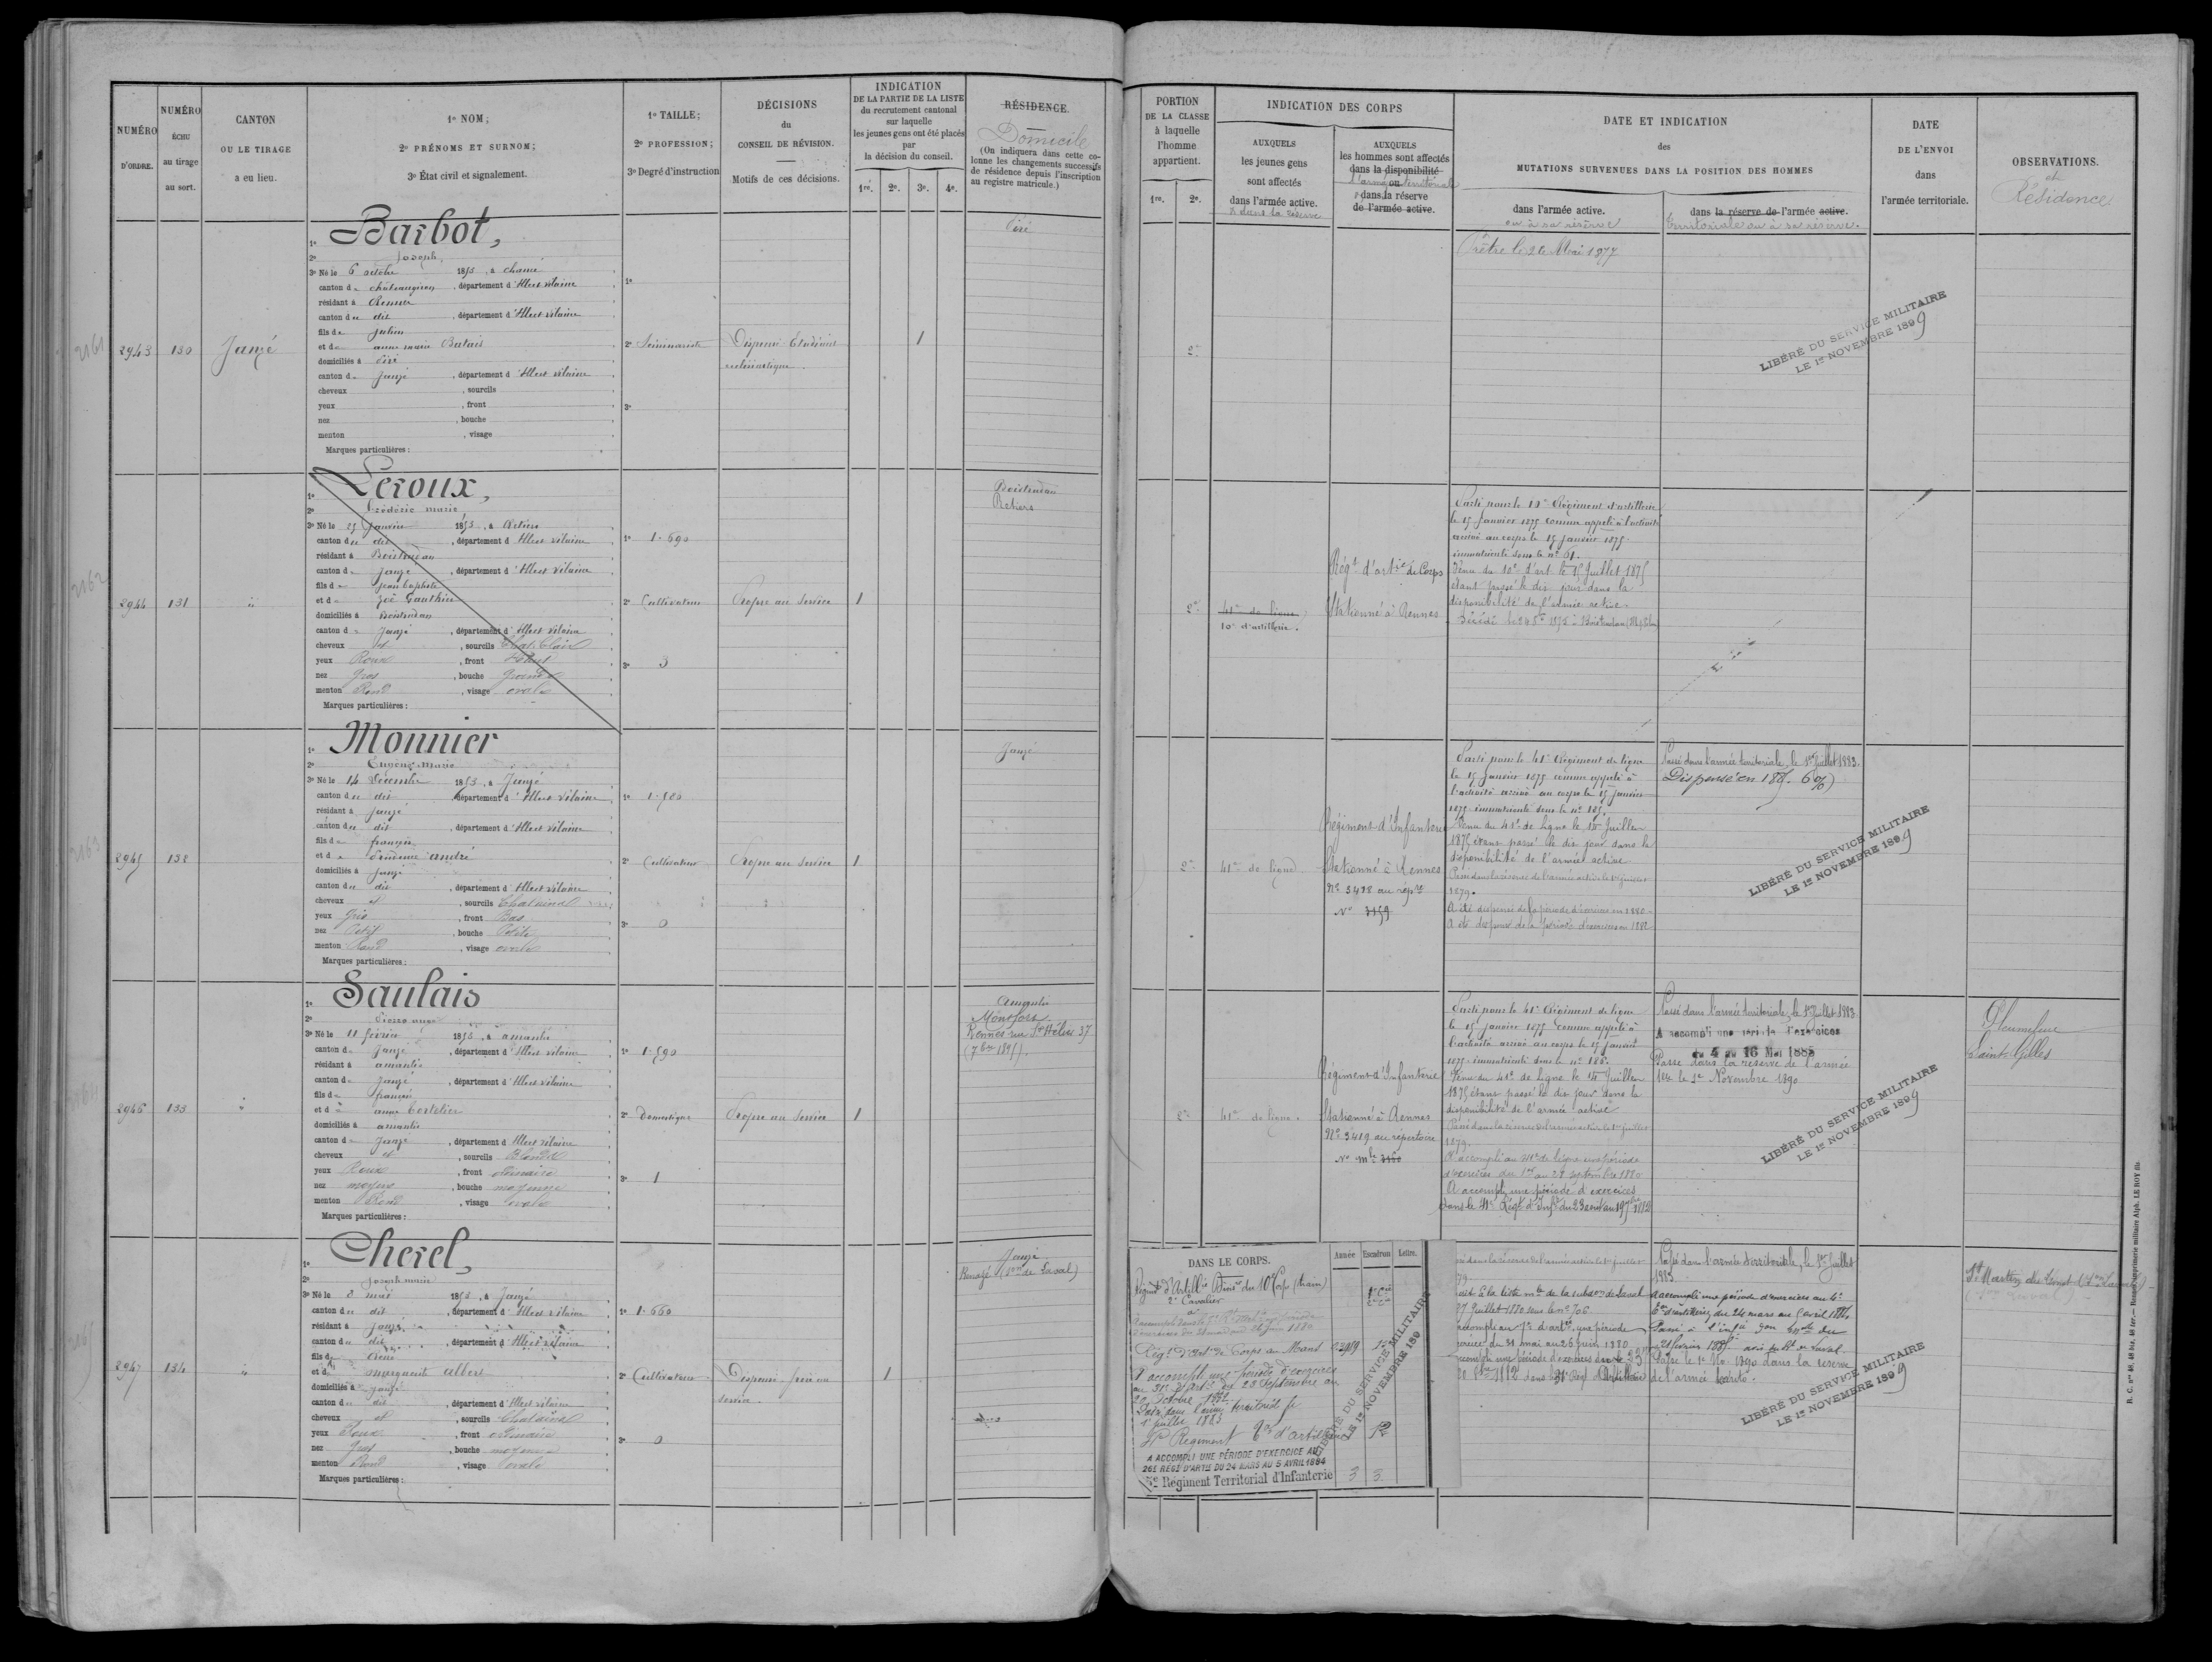 NUMÉRO D'ORDRE.
NUMÉRO ÉCHU au tirage au sort.
CANTON OU LE TIRAGE a eu lieu.
1º NOM;
2º PRÉNOMS ET SURNOM;
3º État civil et signalement.
1º TAILLE;
2º PROFESSION;
3º Degré d'instruction
DÉCISIONS du CONSEIL DE RÉVISION.
Motifs de ces décisions.
INDICATION
DE LA PARTIE DE LA LISTE
du recrutement cantonal
sur laquelle
les jeunes gens ont été placés
par
la décision du conseil.
1re. 2e. 3e. 4e.
RÉSIDENCE.
Domicile
(On indiquera dans cette colonne les changements successifs de résidence depuis l'inscription au registre matricule.)
PORTION
DE LA CLASSE
à laquelle
l'homme
appartient.
1re. 2e.
INDICATION DES CORPS
AUXQUELS
les jeunes gens
sont affectés
dans l'armée active.
& dans la réserve
AUXQUELS
les hommes sont affectés
dans la disponibilité
ou
l'armée territoriale
dans la réserve
de l'armée active.
DATE ET INDICATION
des
MUTATIONS SURVENUES DANS LA POSITION DES HOMMES
dans l'armée active.
ou à sa réserve
dans la réserve de l'armée active.
territoriale ou à sa réserve.
DATE
DE L'ENVOI
dans
l'armée territoriale.
OBSERVATIONS.
et
Résidence
2161
2943 130 Janzé
1º Barbot,
2º Joseph,
3º Né le 6 octobre 1853, à chancé
canton de châteaugiron, département d'Ille et vilaine
résidant à Rennes
canton du dit, département d'Ille et vilaine
fils de Julien
et de anne marie Batais
domiciliés à Piré
canton de Janzé, département d'Ille et vilaine
cheveux , sourcils
yeux , front
nez , bouche
menton , visage
Marques particulières :
1º
2º Séminariste
3º
Dispensé Etudiant
ecclésiastique.
1
Piré
2e
Prêtre le 26 Mai 1877
LIBÉRÉ DU SERVICE MILITAIRE
LE 1er NOVEMBRE 1899
2162
2944 131 "
1º Leroux,
2º Frédéric marie
3º Né le 25 Janvier 1853, à Retiers
canton du dit, département d'Ille et vilaine
résidant à Boistrudan
canton de Janzé, département d'Ille et vilaine
fils de Jean baptiste
et de Zoé Gauthier
domiciliés à Boistrudan
canton de Janzé, département d'Ille et vilaine
cheveux et, sourcils Chat. Clair
yeux Roux, front Haut
nez Gros, bouche Grande
menton Rond, visage ovale
Marques particulières :
1º 1.690
2º Cultivateur
3º 3
Propre au Service
1
Boistrudan
Retiers
2e
41e de ligne
10e d'artillerie.
Régt d'artie de Corps
Stationné à Rennes
Parti pour le 10e Régiment d'artillerie
le 15 Janvier 1875 comme appelé à l'activité
arrivé au corps le 15 Janvier 1875
immatriculé sous le nº 61.
Venu du 10e d'art. le 15 Juillet 1875
étant passé le dit jour dans la
disponibilité de l'armée active
2163
2945 132
1º Monnier
2º Eugène-Marie
3º Né le 14 Décembre 1853, à Janzé
canton du dit, département d'Ille et vilaine
résidant à Janzé
canton du dit, département d'Ille et vilaine
fils de françois
et de Prudence andré
domiciliés à Janzé
canton du dit, département d'Ille et vilaine
cheveux et, sourcils Chatains
yeux Gris, front Bas
nez Petit, bouche Petite
menton Rond, visage ovale
Marques particulières :
1º 1.580
2º Cultivateur
3º 0
Propre au Service
1
Janzé
2e
41e de ligne
Régiment d'Infanterie
Stationné à Rennes
Nº 3418 au répre
Nº 3159
Parti pour le 41e Régiment de ligne
le 15 Janvier 1875 comme appelé à
l'activité arrivé au corps le 15 janvier
1875 immatriculé sous le nº 185.
Venu du 41e de Ligne le 14 Juillet
1875 étant passé le dit jour dans la
disponibilité de l'armée active
Passé dans la réserve de l'armée active le 1er juillet
1879.
A été dispensé de la période d'exercices en 1880
A été dispensé de la période d'exercices en 1882
Passé dans l'armée territoriale, le 1er Juillet 1883.
Dispensé en 1885. 6%)
LIBÉRÉ DU SERVICE MILITAIRE
LE 1er NOVEMBRE 1899
2164
2946 133 "
1º Saulais
2º Pierre ange
3º Né le 11 février 1853, à amanlis
canton de Janzé, département d'Ille et vilaine
résidant à amanlis
canton de Janzé, département d'Ille et vilaine
fils de françois
et de anne bertelier
domiciliés à amanlis
canton de Janzé, département d'Ille et vilaine
cheveux et, sourcils Blonds
yeux Roux, front ordinaire
nez moyen, bouche moyenne
menton Rond, visage ovale
Marques particulières :
1º 1.590
2º Domestique
3º 1
Propre au Service
1
Amanlis
Montfort
Rennes rue St Hélier 37
2e
41e de ligne.
Régiment d'Infanterie
Stationné à Rennes
Nº 3419 au répertoire
Nº mle 3160
Parti pour le 41e Régiment de ligne
le 15 janvier 1875 comme appelé à
l'activité arrivé au corps le 15 janvier
1875 immatriculé sous le nº 186.
Venu du 41e de Ligne le 14 Juillet
1875 étant passé le dit jour dans la
disponibilité de l'armée active
Passé dans la réserve de l'armée active le 1er juillet
1879.
A accompli au 41e de ligne une période
d'exercices du 1er au 28 septembre 1880
A accompli une période d'exercices
dans le 41e Régt d'Infie du 23 août au 19 7bre 1882
Passé dans l'armée territoriale, le 1er Juillet 1883.
A accompli une période d'exercices
du 4 au 16 Mai 1885
Passé dans la réserve de l'armée
ter le 1er Novembre 1890
LIBÉRÉ DU SERVICE MILITAIRE
LE 1er NOVEMBRE 1899
Pleumeleuc
Saint-Gilles
2165
2947 134 "
1º Cherel,
2º Joseph marie
3º Né le 3 mai 1853, à Janzé
canton du dit, département d'Ille et vilaine
résidant à Janzé
canton du dit, département d'Ille et vilaine
fils de René
et de marguerite allier
domiciliés à Janzé
canton du dit, département d'Ille et vilaine
cheveux et, sourcils Chatains
yeux Roux, front ordinaire
nez Gros, bouche moyenne
menton Rond, visage ovale
Marques particulières :
1º 1.660
2º Cultivateur
3º 0
Dispensé frère au
service.
1
Janzé
Renazé (Son de Laval)
DANS LE CORPS. Année Escadron Lettre.
Régimt d'Artillie Divre du 10e Corps (train)
2e Cavalier
Régt d'artie de Corps Le Mans
A accompli une période d'exercices
au 31e d'artie du 23 Septembre au
20 Octobre 1882
Passé dans l'armée territoriale le
1er juillet 1883
4e Régiment ter d'artillerie 12
A ACCOMPLI UNE PÉRIODE D'EXERCICE AU
26E RÉGt D'ARTIE DU 24 MARS AU 5 AVRIL 1884
Régiment Territorial d'Infanterie 3 3
LIBÉRÉ DU SERVICE MILITAIRE
LE 1er NOVEMBRE 189
27 Juillet 1880 sous le nº 706
accompli au 7e d'artie une période
d'exercices du 31 mai au 26 juin 1880
accompli une période d'exercices du
dans le 31e Régt d'Artillerie
Passé dans l'armée territoriale, le 1er Juillet
1883.
A accompli une période d'exercices au
d'artillerie du 24 mars au 5 avril 1884
Passé le 1er No. 1890 dans la réserve
de l'armée territo.
LIBÉRÉ DU SERVICE MILITAIRE
LE 1er NOVEMBRE 1899
R. C. nos 46, 46 bis, 46 ter. — Rennes, imprimerie militaire Alph. LE ROY fils